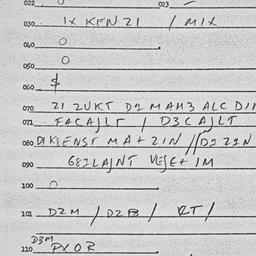 022 O 023
030 1X KFNZI / MIX
040 O
050 O
060
070 ZI ZUKT DZ MAM3 ALC DI
071 FACAJLT / D3CAJLT
080 DIKEENST MA+ZIN // DZ ZIN
090 GEZLAJNT VEJE+ IM
100 O
101 DZM / DZB / RT /
D3M
110 PXOR